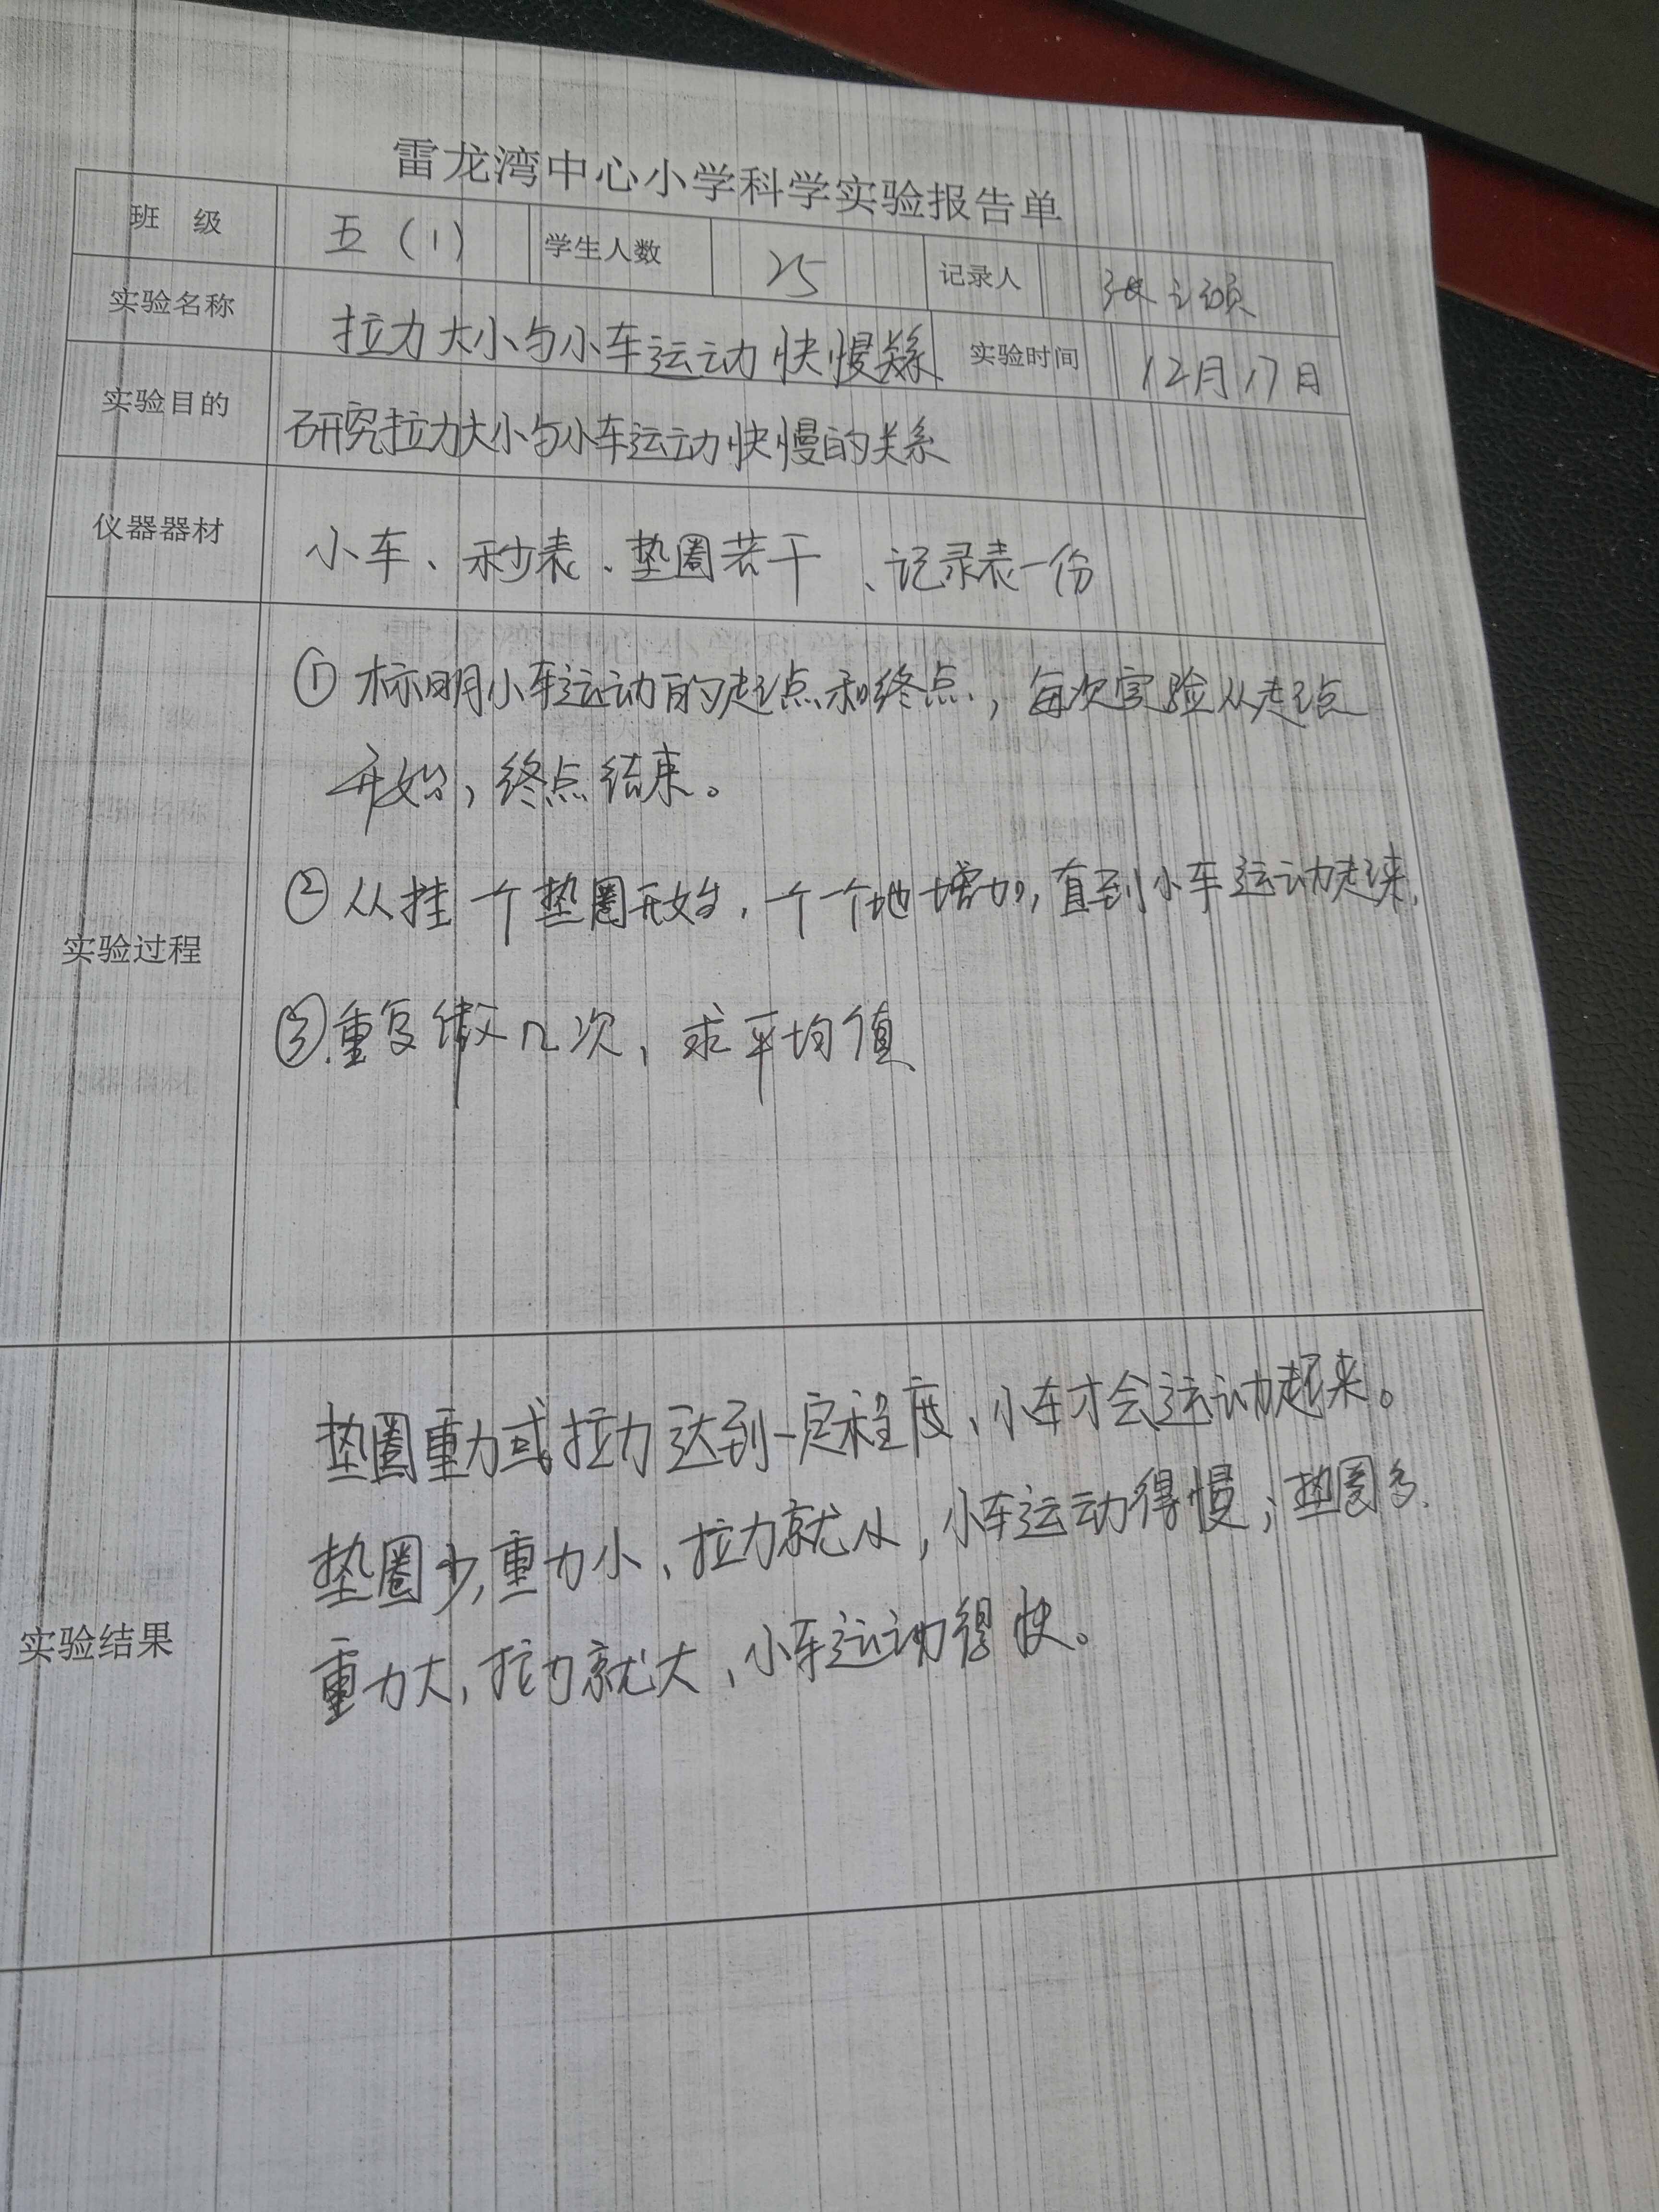 雷龙湾中心小学科学实验报告单
班 级 五（1） 学生人数 25 记录人 张
实验名称 拉力大小与小车运动快慢关系 实验时间 12月17日
实验目的 研究拉力大小与小车运动快慢的关系
仪器器材 小车、秒表、垫圈若干、记录表一份
①标明小车运动的起点和终点，每次实验从起点
开始，终点结束。
②从挂一个垫圈开始，一个个地增加，直到小车运动起来，
实验过程
③重复做几次，求平均值
垫圈重力或拉力达到一定程度，小车才会运动起来。
垫圈少，重力小，拉力就小，小车运动得慢；垫圈多，
实验结果
重力大，拉力就大，小车运动得快。